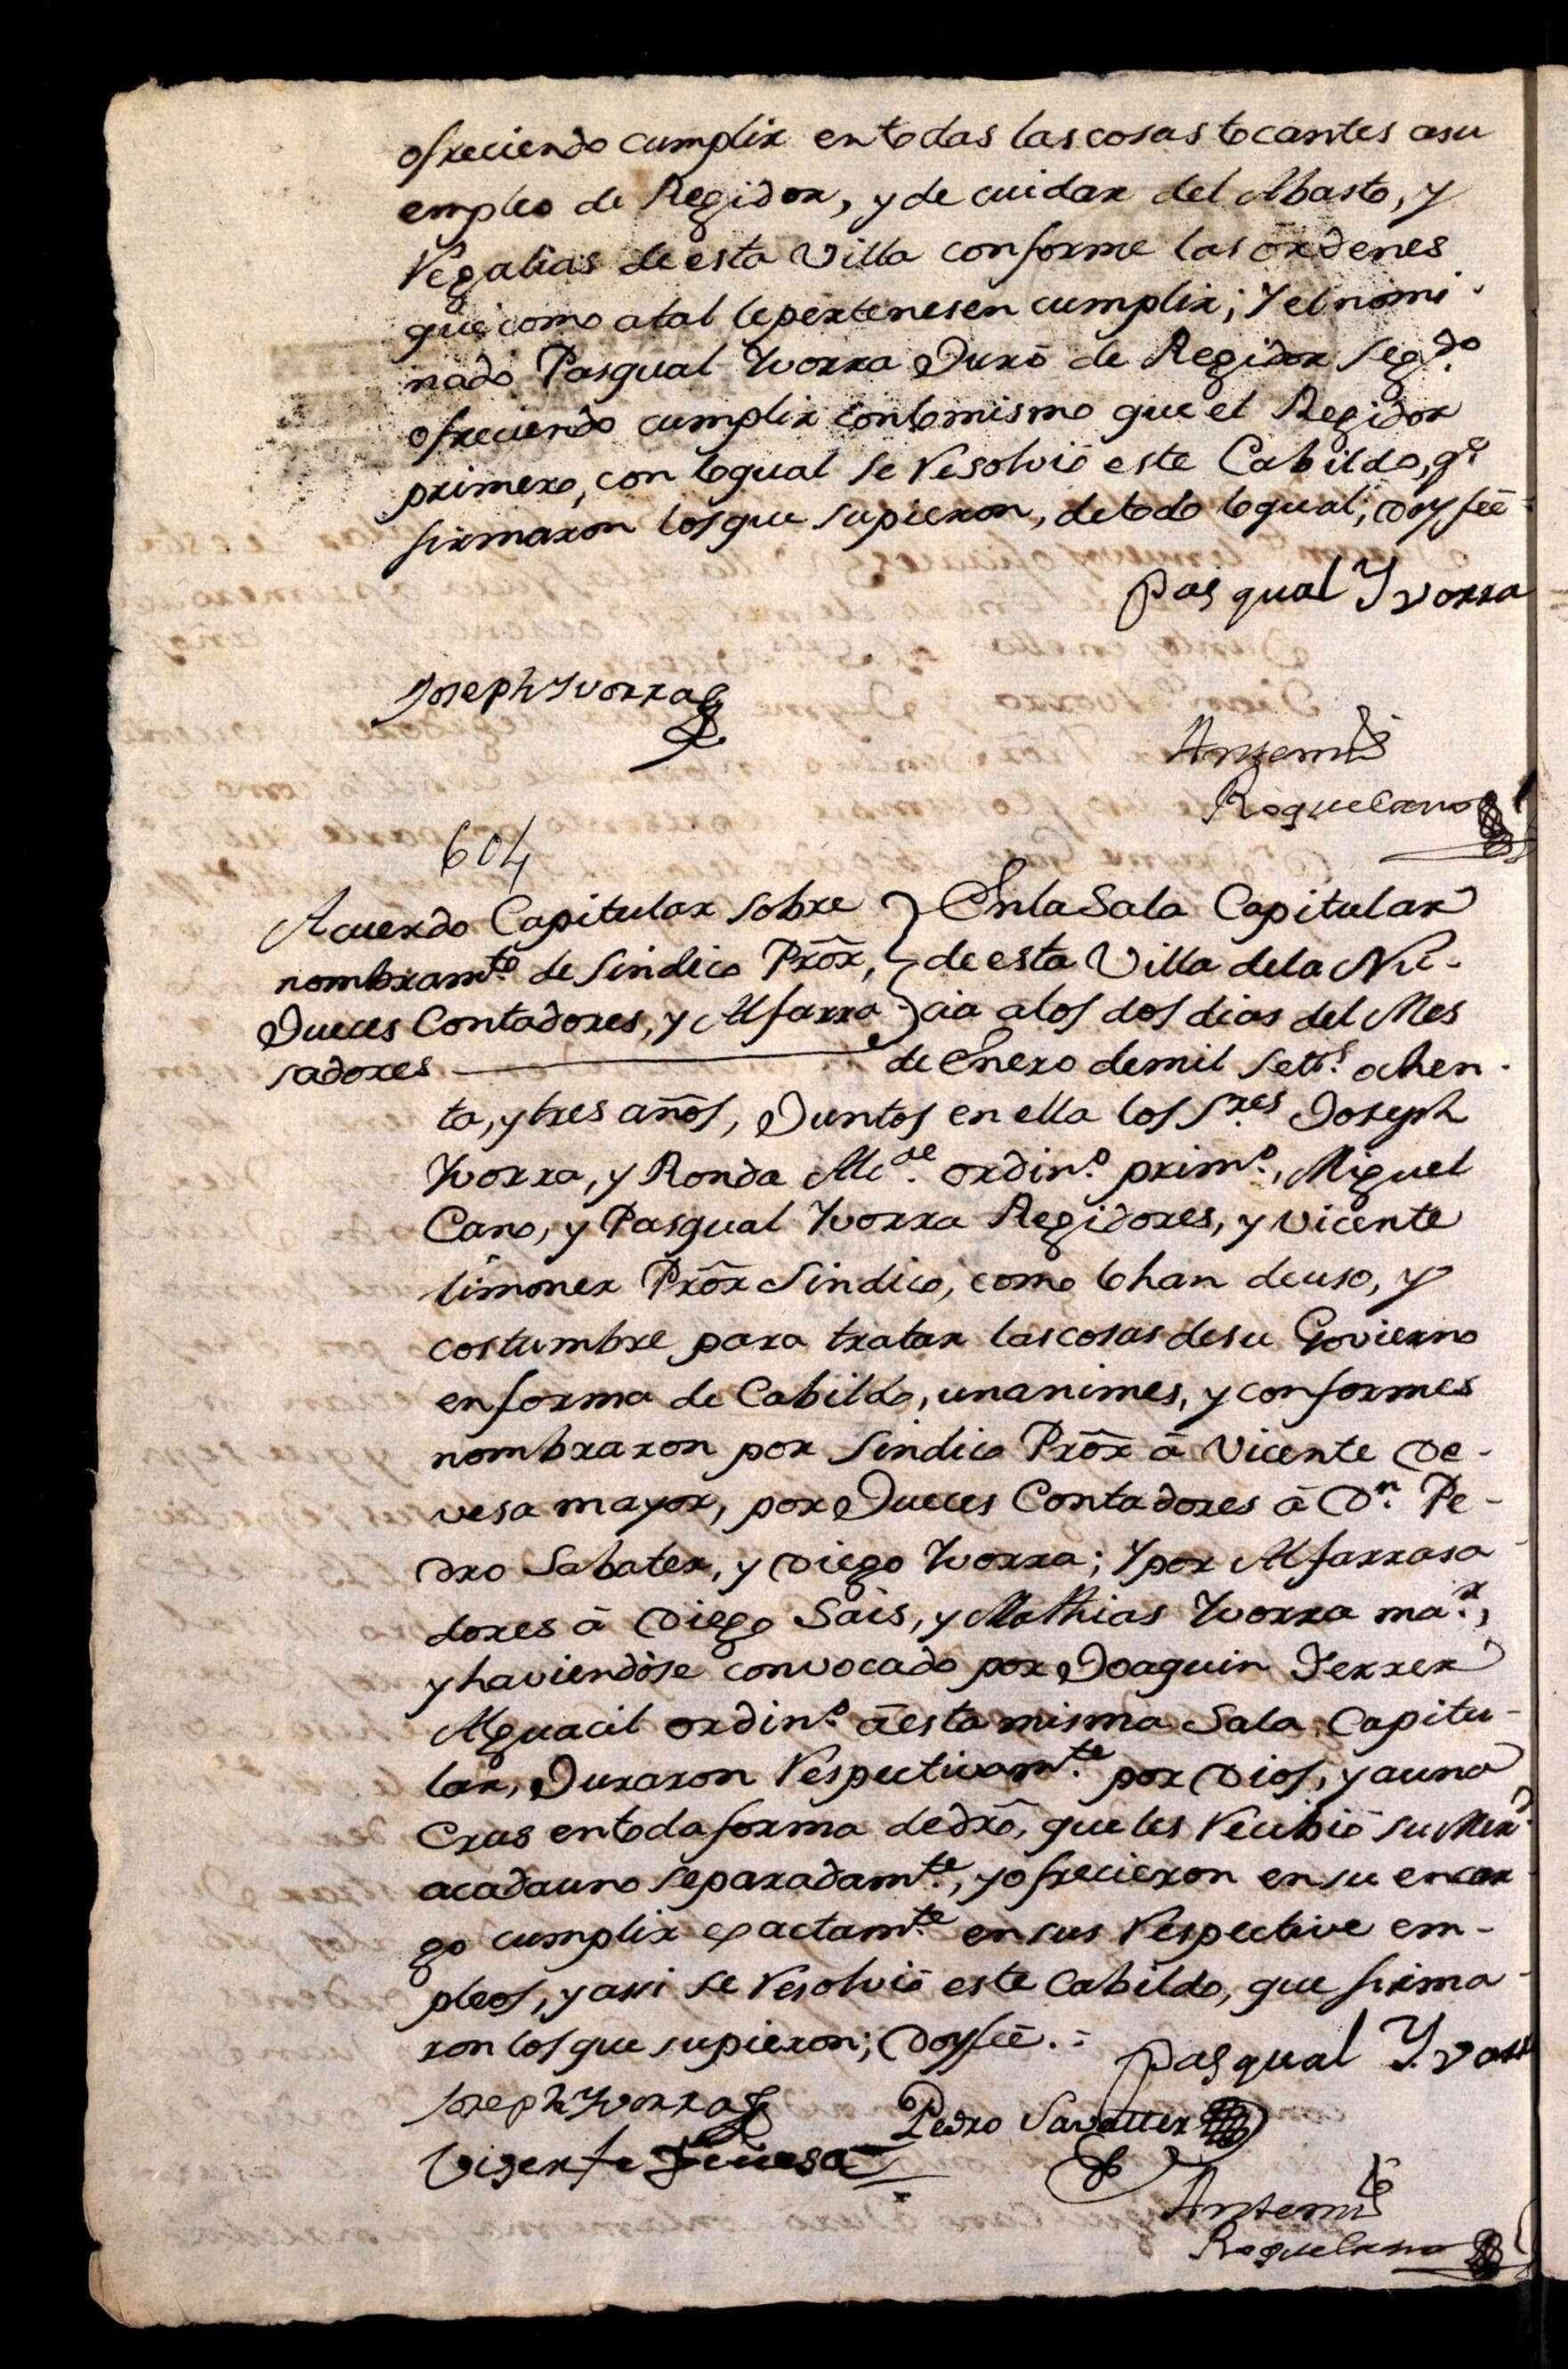 ofreciendo cumplir entodas lascosas tocantes asu
empleo de Regidor, y de cuidar del Abasto, y
Regalias de esta Villa conforme las ordenes
que como atal lepertenesen cumplir; Y el nomi-
nado Pasqual Yvorra Juró de Regidor Seg.do
ofreciendo cumplir conlomismo que el Regidor
primero, con loqual se Resolvió este Cabildo, q.e
firmaron losque supieron, detodo loqual, Doy feé
Pasqual Yvorra
Joseph Yvorra
Antemi
Roque Cano
604
Acuerdo Capitular sobre
nombram.to de Sindico Prôr,
Jueces Contadores, y Alfarra-
sadores
Enla Sala Capitular
de esta Villa dela Nu-
cia alos dos dias del Mes
de Enero demil Set.s ochen-
ta, y tres años, Juntos en ella los S.res Joseph
Yvorra, y Ronda Alc.de ordin.o prim.o, Miguel
Cano, y Pasqual Yvorra Regidores, y Vicente
Limoner Prôr Sindico, como lohan deuso, y
costumbre para tratar lascosas desu Govierno
enforma de Cabildo, unanimes, y conformes
nombraron por Sindico Prôr á Vicente De-
vesa mayor, por Jueces Contadores á D.n Pe-
dro Sabater, y Diego Yvorra; Y por Alfarrasa-
dores á Diego Sais, y Mathias Yvorra ma.r,
y haviendose convocado por Joaquin Ferrer
Alguacil ordin.o áesta misma Sala Capitu-
lar, Juraron Respectivam.te por Dios, y auna
Crus entoda forma dedrô, que les Recibió su Mer.d
acadauno separadam.te, y ofrecieron en su encar-
go cumplir exactam.te en sus Respective em-
pleos, y assi se Resolvió este Cabildo, que firma-
ron losque supieron; Doy feé.=
Pasqual Yvorr
Joseph Yvorra
Pedro Savatter
Visente Devesa
Antemi
Roque Cano